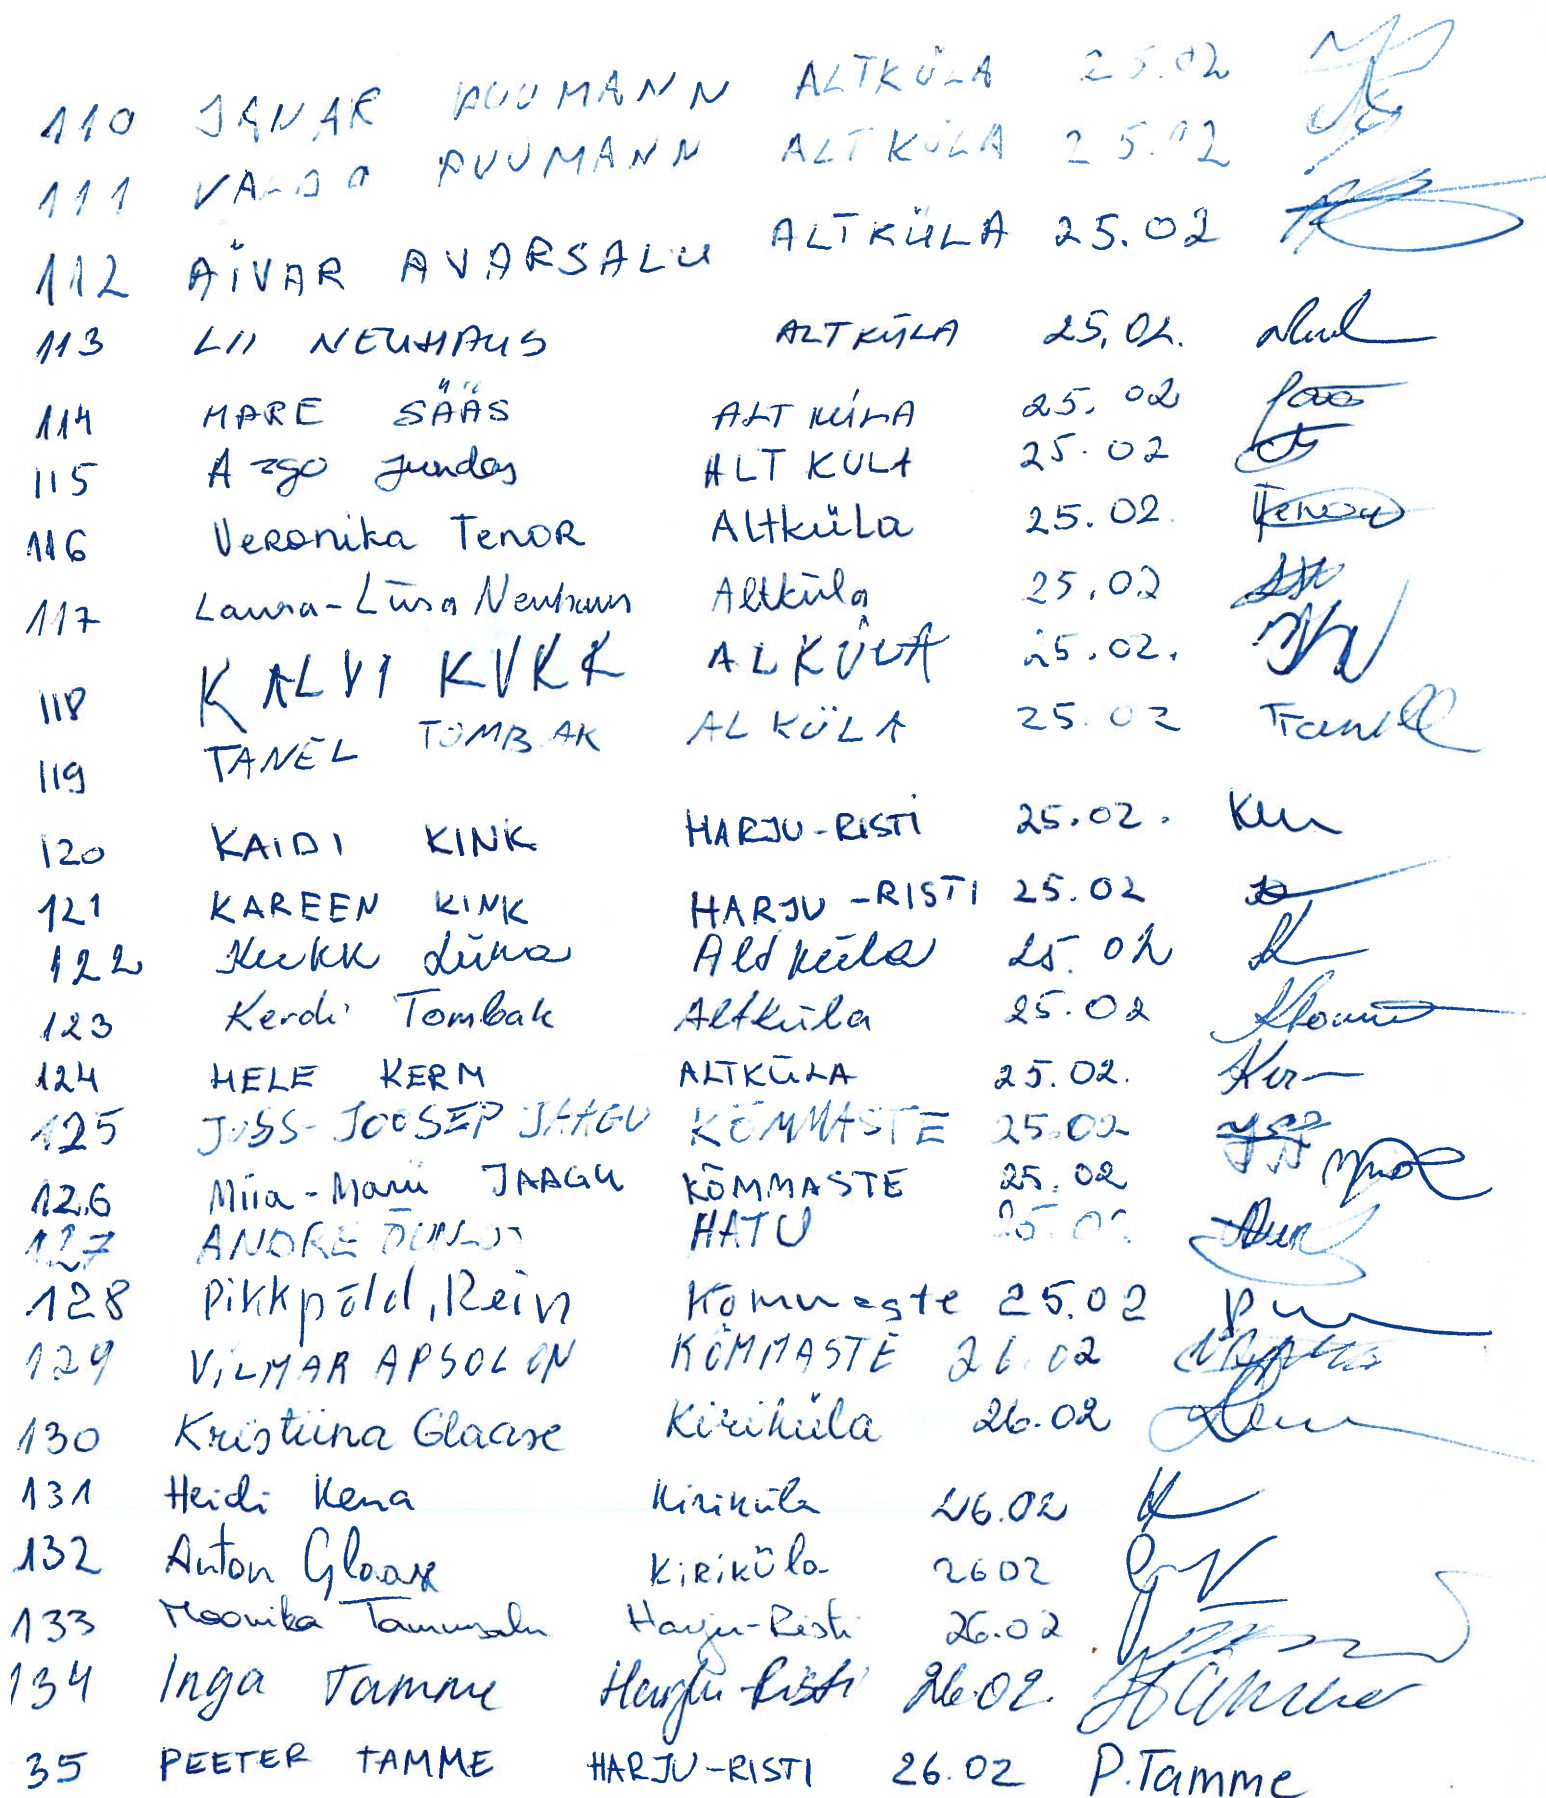 110 JANAR PUUMANN ALTKÜLA 25.02
111 PUUMANN ALTKÜLA 25.02
112 AIVAR AVARSALU ALTKÜLA 25.02
113 LII NEUHAUS ALTKÜLA 25.02.
114 MARE SÄÄS ALTKÜLA 25.02
115 ALT KULA 25.02
116 Veronika TENOR Altküla 25.02 Tenor
117 Laura-Liisa Neuhaus Altküla 25.02
118 KALVI KUKK ALKÜLA 25.02.
119 TANEL TOMBAK ALKÜLA 25.02
120 KAIDI KINK HARJU-RISTI 25.02.
121 KAREEN KINK HARJU-RISTI 25.02
122 Kukk Altküla 25.02
123 Kerdi Tombak Altküla 25.02
124 HELE KERM ALTKÜLA 25.02.
125 JUSS-JOOSEP JAAGU KÕMMASTE 25.02
126 Miia-Marii JAAGU KÕMMASTE 25.02
127 ANDRE HATU 25.02
128 Pikkpõld, Rein Kõmmaste 25.02
129 VILMAR APSOLON KÕMMASTE 26.02
130 Kristiina Glaase Kiriküla 26.02
131 Heidi Kena Kiriküla 26.02
132 Anton Glaase KIRIKÜla 2602
133 Moonika Tammsalu Harju-Risti 26.02
134 Inga Tamme Harju-Risti 26.02.
35 PEETER TAMME HARJU-RISTI 26.02 P.Tamme